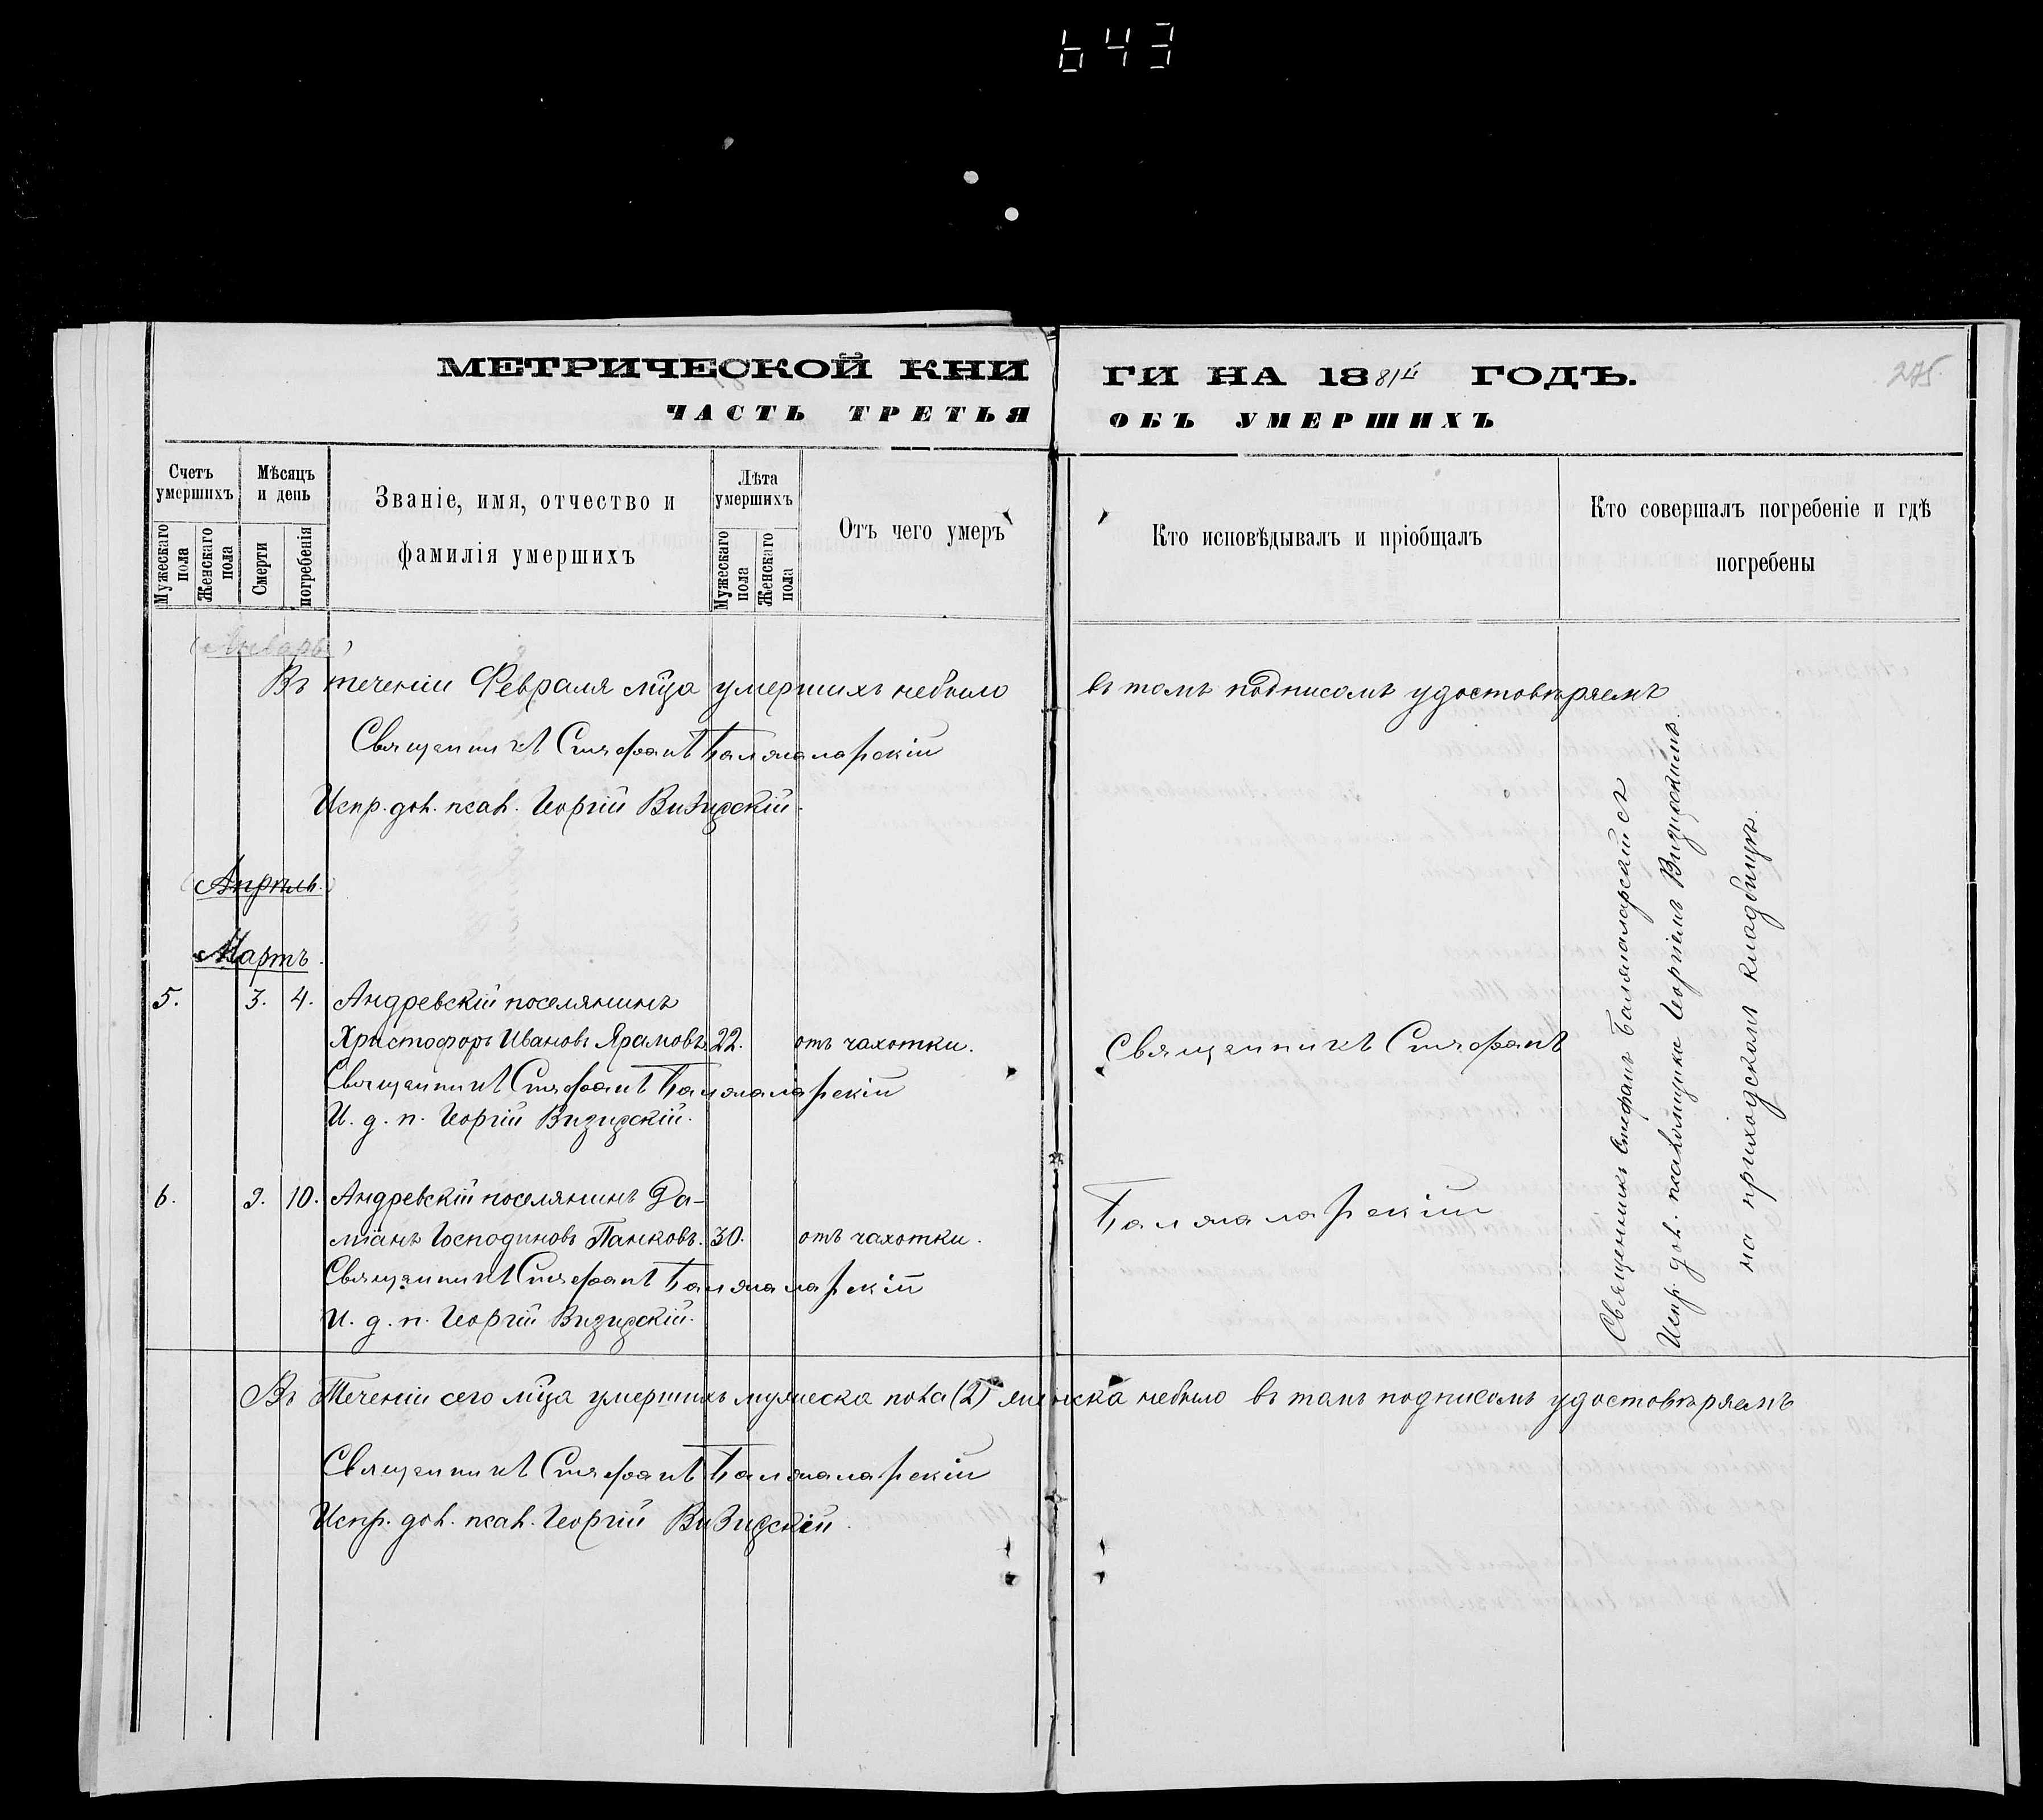 643
МЕТРИЧЕСКОЙ КНИГИ НА 1881й ГОДЪ.
275.
ЧАСТЬ ТРЕТЬЯ ОБЪ УМЕРШИХЪ
Счетъ умершихъ
Мужескаго пола
Женскаго пола
Мѣсяцъ и день
Смерти
погребенія
Званіе, имя, отчество и
фамилія умершихъ
Лѣта умершихъ
Мужескаго пола
Женскаго пола
Отъ чего умеръ
Кто исповѣдывалъ и пріобщалъ
Кто совершалъ погребеніе и гдѣ
погребены
(Январь)
Въ теченіи Февраля мѣца умершихъ небыло въ томъ подписомъ удостовѣряемъ
Священникъ Стефанъ
Испр. дол. псал. Георгій Визирскій.
(Апрѣль.)
Мартъ.
5. 3. 4. Андревскій поселянинъ
Христофоръ Ивановъ Ярамовъ 22. отъ чахотки.
Священникъ Стефанъ
И. д. п. Георгій Визирскій.
6. 9. 10. Андревскій поселянинъ Да-
міанъ Господиновъ Панковъ. 30. отъ чахотки.
Священникъ Стефанъ
И. д. п. Георгій Визирскій.
Священникъ Стефанъ
Священникъ Стефанъ съ
Испр. дол. псаломщика Георгіемъ Визирскимъ.
на приходскомъ кладбищѣ.
Въ Теченіи сего мѣца умершихъ мужеска пола (2) женска небыло въ томъ подписомъ удостовѣряемъ
Священникъ Стефанъ
Испр. дол. псал. Георгій Визирскій.